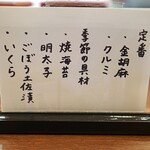 定番
・金胡麻
・クルミ
季節の具材
・焼海苔
・明太子
・ごぼう土佐漬
・いくら